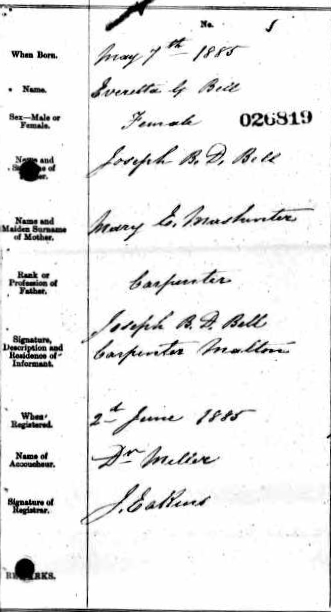 No. 5
When Born. May 7th 1885
Name. Everetta G Bell
Sex—Male or
Female. Female 026819
Name and
of Joseph B. D. Bell
Name and
Maiden Surname
of Mother. Mary E. Mashinter
Rank or
Profession of
Father. Carpenter
Joseph B. D. Bell
Signature,
Description and
Residence of
Informant. Carpenter Malton
When
Registered. 2d June 1885
Name of
Accoucheur. Dr Miller
Signature of
Registrar. J. Eakins
REMARKS.